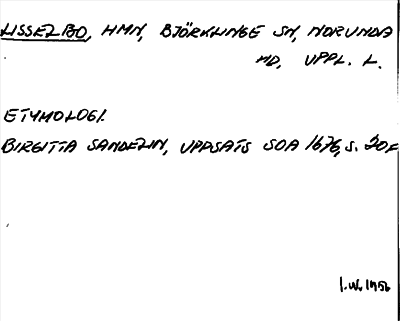 LISSELBO, HMN, BJÖRKLINGE SN, NORUNDA
HD, UPPL. L.
ETYMOLOGI.
BIRGITTA SANDELIN, UPPSATS SOA 1676, S. 20F